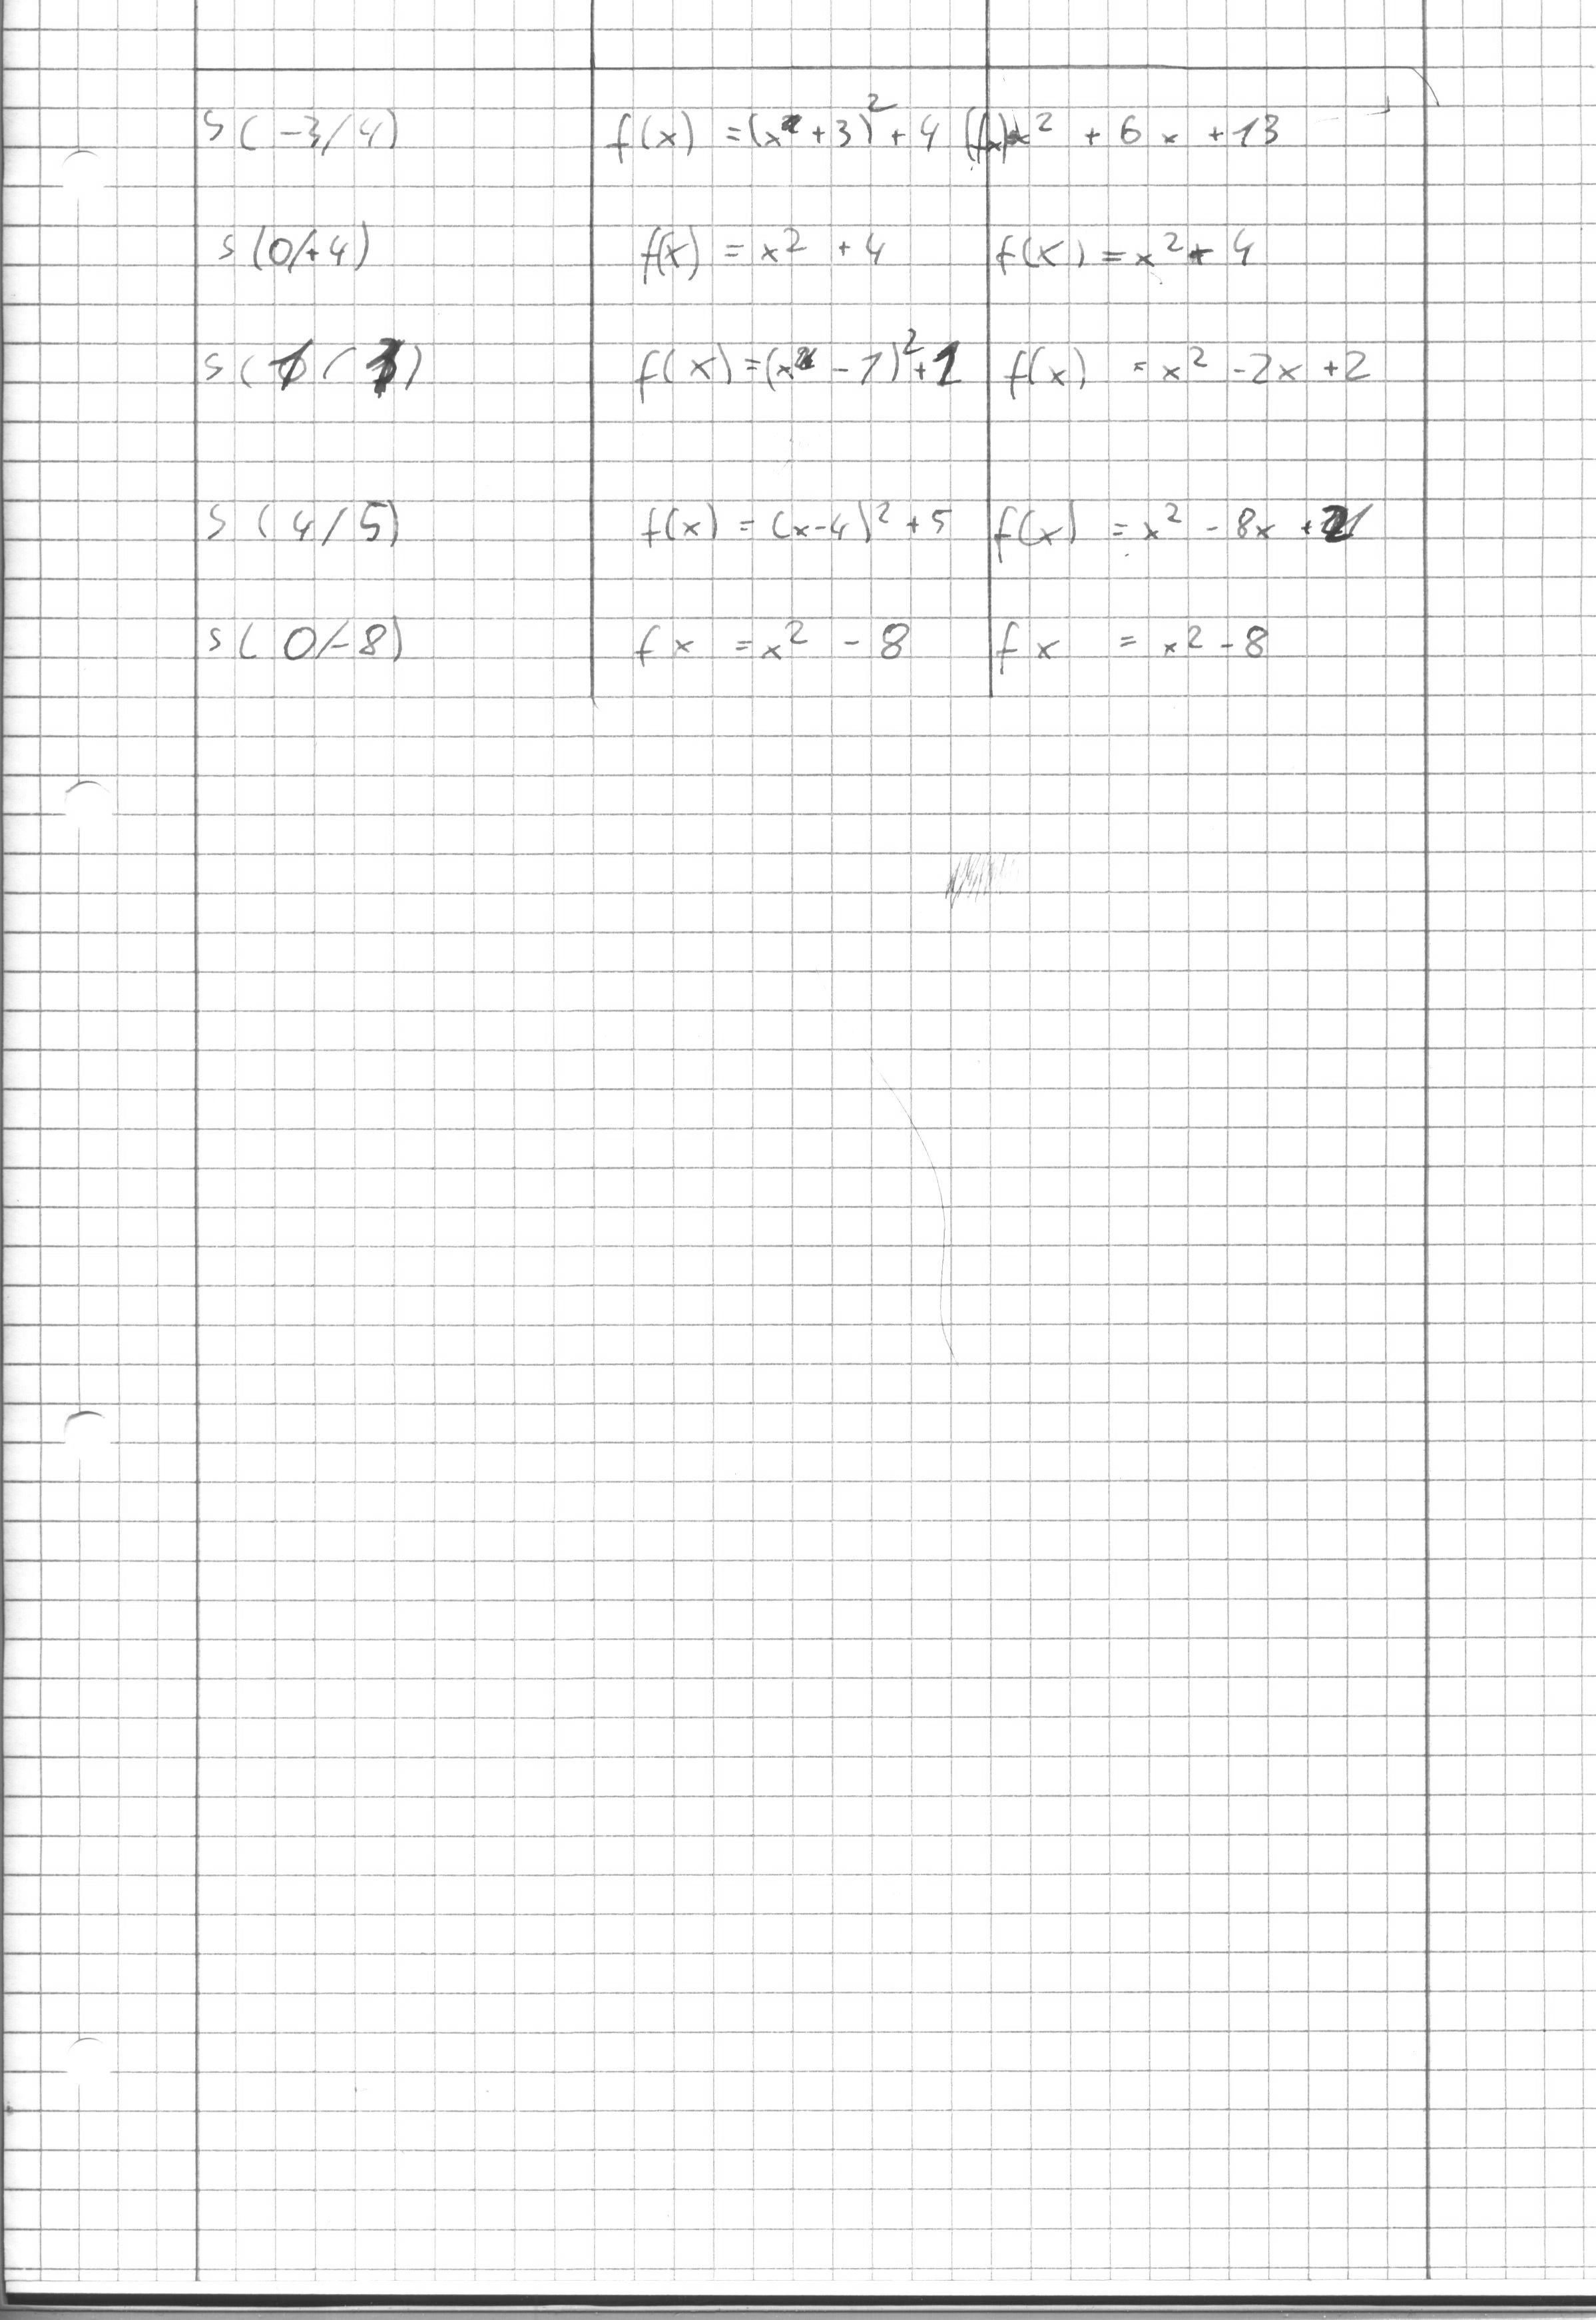 S (-3/4) f(x) =(x +3)² + 4 f(x) x² + 6x +13
S (0/+4) f(x) = x² + 4 f(x) = x² + 4
S (1/1) f(x) =(x -1)² +1 f(x) = x² -2x +2
S (4/5) f(x) = (x-4)² +5 f(x) = x² - 8x +21
S (0/-8) fx = x² - 8 fx = x² - 8